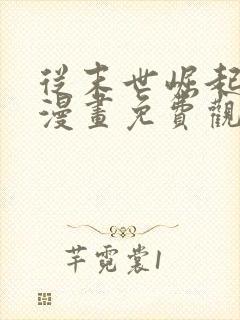 從末世崛起
漫畫免費觀
芊霓裳1